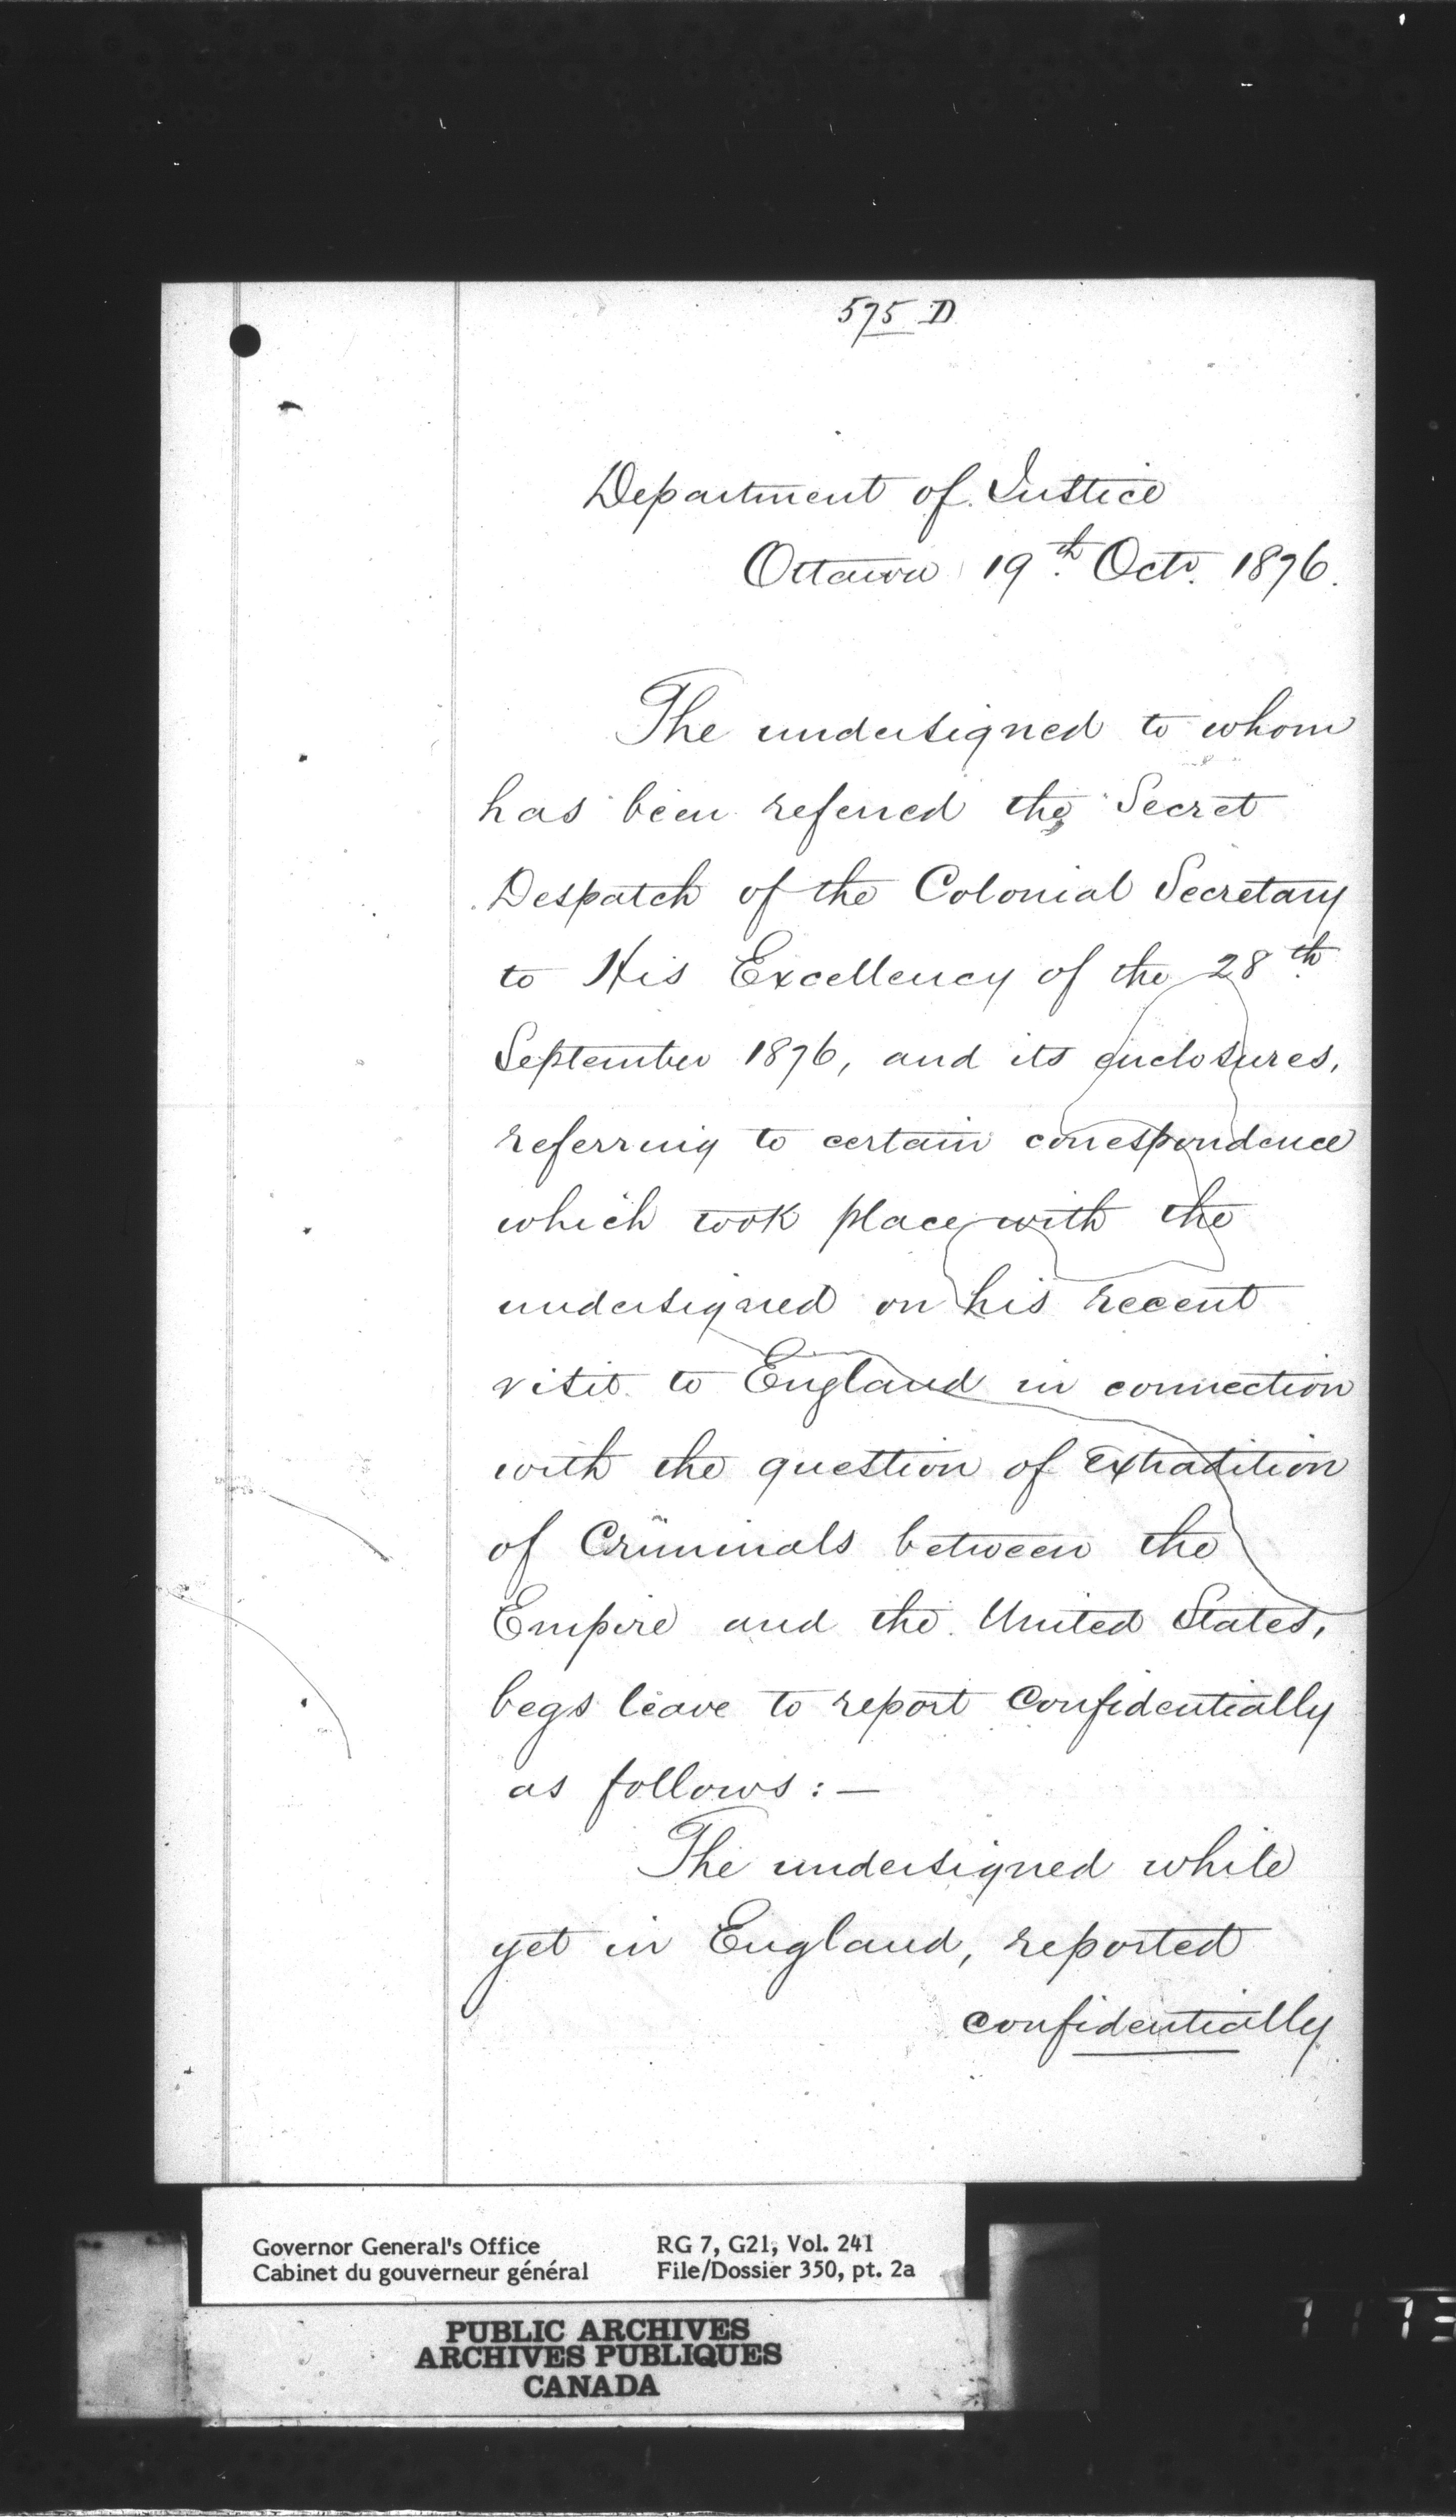 575 D
Department of Justice
Ottawa 19th. Octr. 1876.
The undersigned to whom
has been referred the Secret
Despatch of the Colonial Secretary
to His Excellency of the 28th
September 1876, and its enclosures,
referring to certain correspondence
which took place with the
undersigned on his recent
visit to England in connection
with the question of Extradition
of Criminals between the
Empire and the United States,
begs leave to report Confidentially
as follows: —
The undersigned while
yet in England, reported
confidentially
Governor General's Office RG 7, G21, Vol. 241
Cabinet du gouverneur général File/Dossier 350, pt. 2a
PUBLIC ARCHIVES
ARCHIVES PUBLIQUES
CANADA
1173